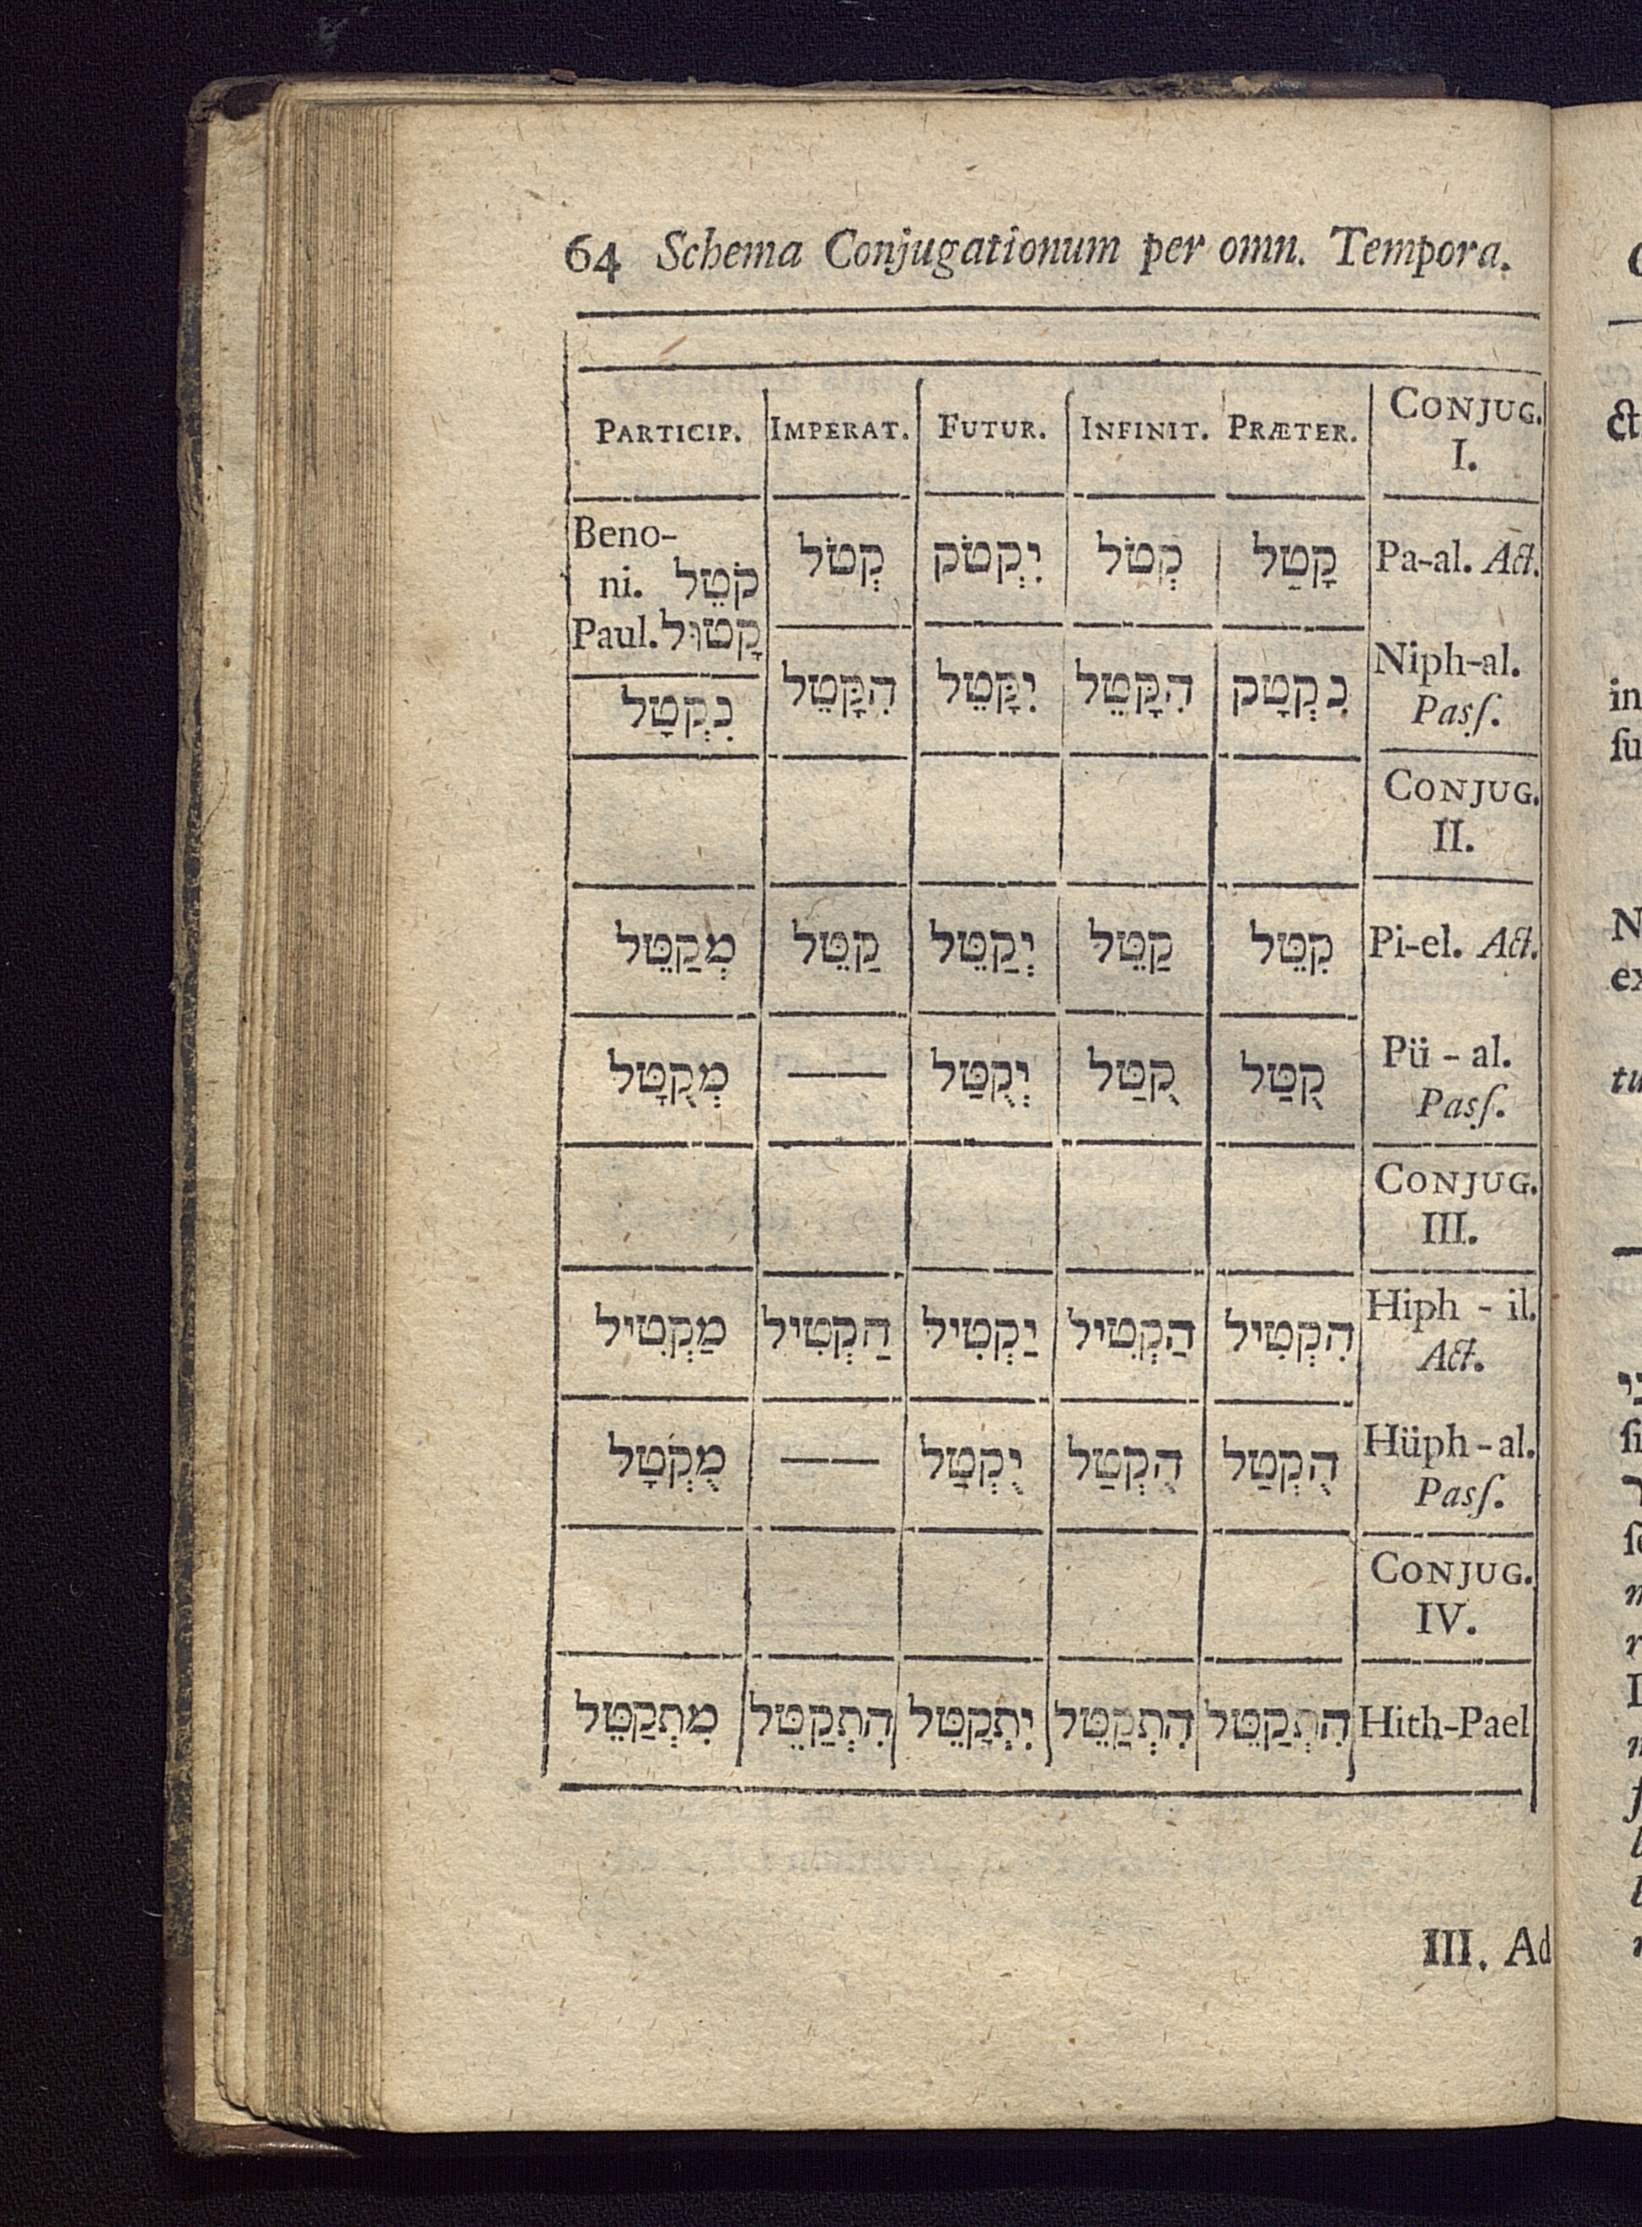 64 Schema Conjugationum per omn. Tempora.
PARTICIP. IMPERAT. FUTUR. INFINIT. PRÆTER. CONJUG. I.
Beno-
ni. קֹטֵל קְטֹל יִקְטֹק קְטֹל קָטַל Pa-al. Act.
Paul. קָטוּל
נִקְטָל הִקָּטֵל יִקָּטֵל הִקָּטֵל נִקְטָק Niph-al.
Paſſ.
CONJUG.
II.
מְקַטֵּל קַטֵּל יְקַטֵּל קַטֵּל קִטֵּל Pi-el. Act.
מְקֻטָּל —— יְקֻטַּל קֻטַּל קֻטַּל Pü - al.
Paſſ.
CONJUG.
III.
מַקְטִיל הַקְטִיל יַקְטִיל הַקְטִיל הִקְטִיל Hiph - il.
Act.
מֻקְטָל —— יֻקְטַל הֻקְטַל הֻקְטַל Hüph - al.
Paſſ.
CONJUG.
IV.
מִתְקַטֵּל הִתְקַטֵּל יִתְקַטֵּל הִתְקַטֵּל הִתְקַטֵּל Hith-Pael
III. Ad